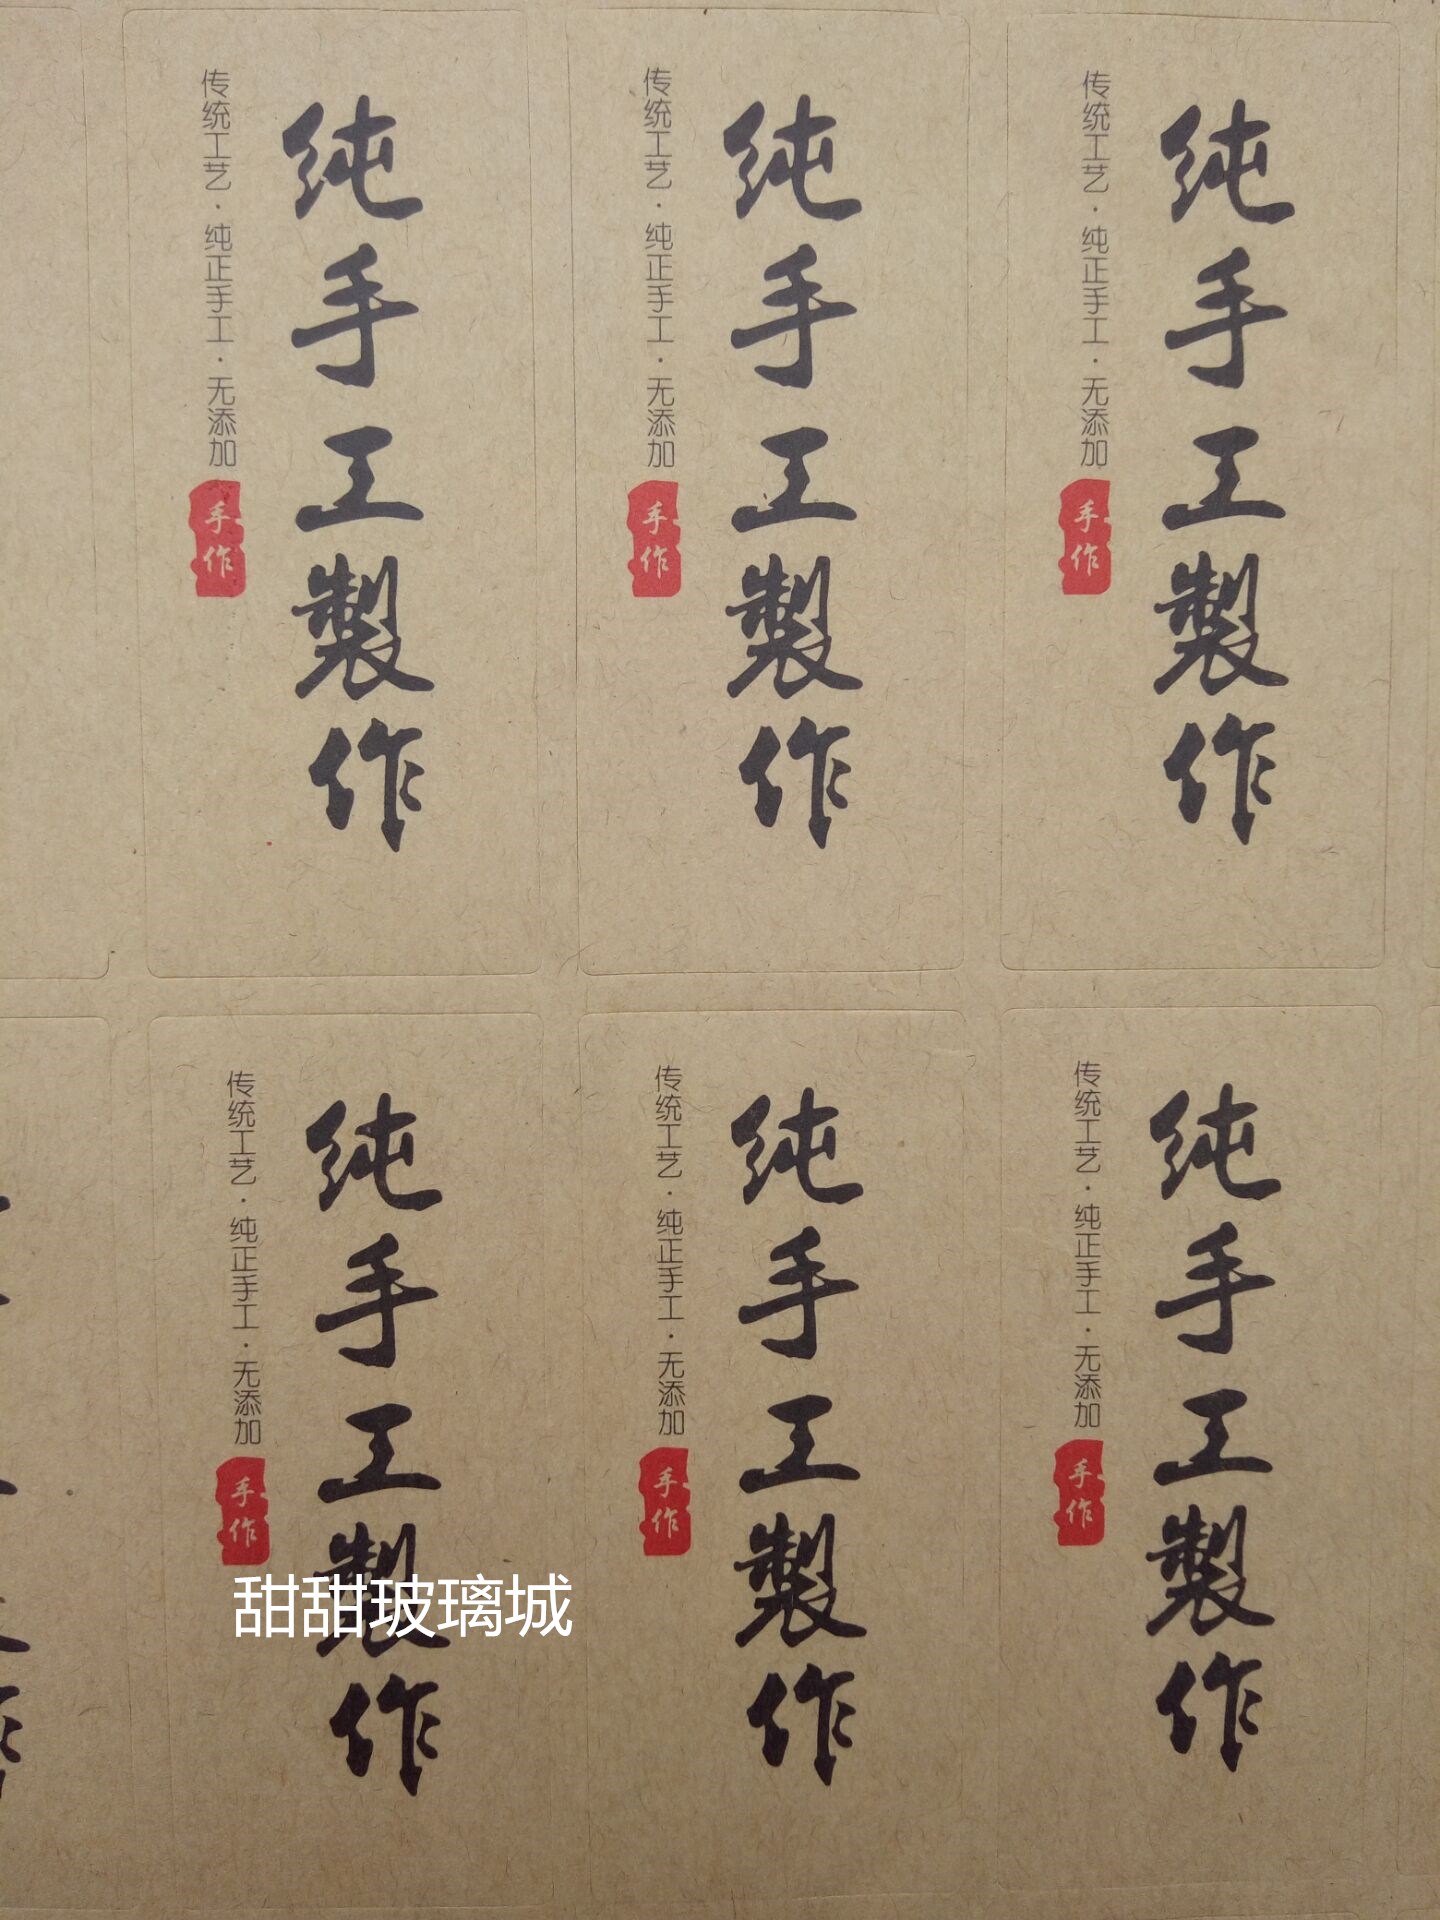 纯手工製作
传统工艺·纯正手工·无添加
手作
纯手工製作
传统工艺·纯正手工·无添加
手作
纯手工製作
传统工艺·纯正手工·无添加
手作
纯手工製作
传统工艺·纯正手工·无添加
手作
纯手工製作
传统工艺·纯正手工·无添加
手作
纯手工製作
传统工艺·纯正手工·无添加
手作
甜甜玻璃城